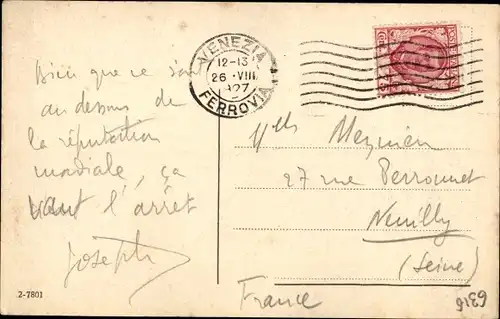 VENEZIA
12-13
26 · VIII
927
FERROVIA
Bien que ce soit
au dessous de
la réputation
mondiale, ça
vaut l'arrêt
Joseph
Mlle Meynien
27 rue Perronnet
Neuilly
(Seine)
France
2-7801
6316